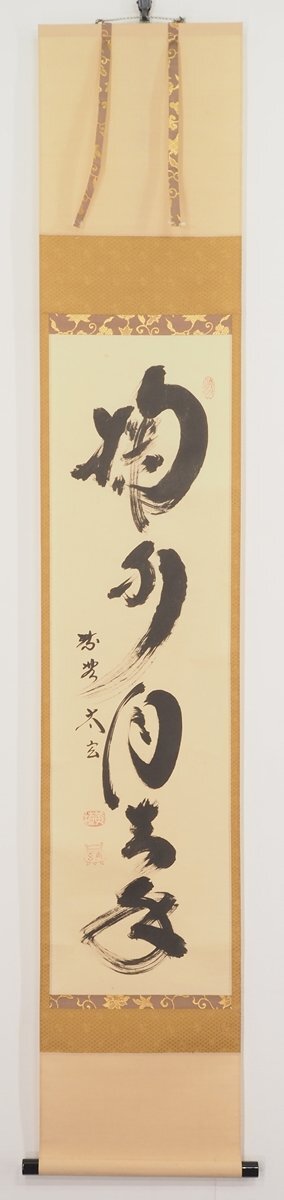 掬水月在手
紫野 太玄